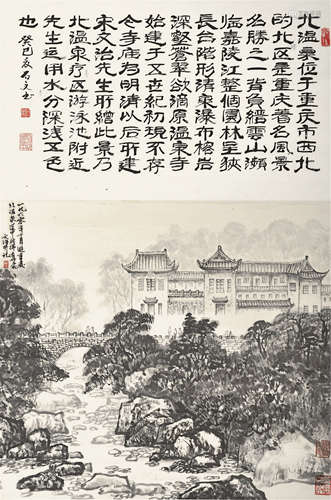 北温泉位于重庆市西北
的北区是重庆著名風景
名勝之一背負縉雲山瀕
临嘉陵江整個園林呈狹
長台階形清泉瀑布格局
深壑蒼翠欲滴原温泉寺
始建于五世紀初現不存
今寺庙為明清以后所建
宋文治先生所繪此景乃
北温泉疗区游泳池附近
先生运用水分深浅五色
也
癸巳夏